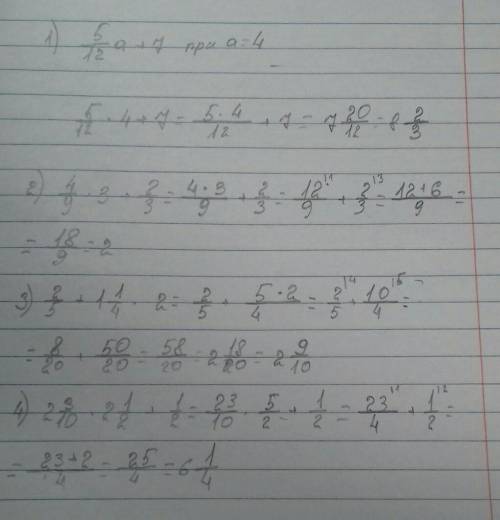 1) 5/12 a + 7 при a = 4
5/12 · 4 + 7 = 5·4/12 + 7 = 7 20/12 = 8 2/3
2) 4/9 · 3 + 2/3 = 4·3/9 + 2/3 = 12/9 \1 + 2/3 \3 = 12+6/9 =
= 18/9 = 2
3) 2/5 + 1 1/4 · 2 = 2/5 + 5·2/4 = 2/5 \4 + 10/4 \5 =
= 8/20 + 50/20 = 58/20 = 2 18/20 = 2 9/10
4) 2 3/10 · 2 1/2 + 1/2 = 23/10 · 5/2 + 1/2 = 23/4 \1 + 1/2 \2 =
= 23+2/4 = 25/4 = 6 1/4